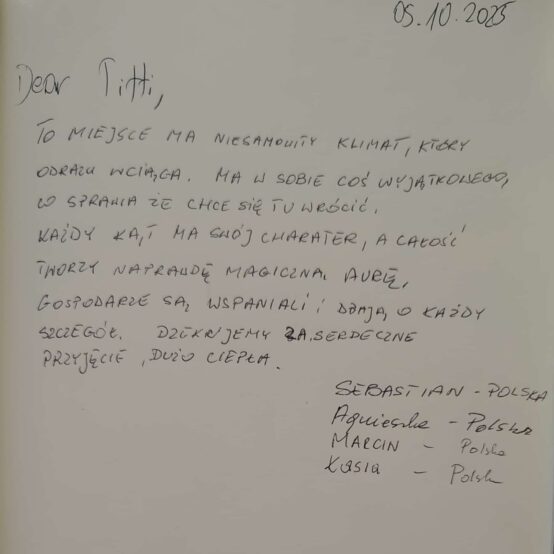 05.10.2025
Dear Titti,
TO MIEJSCE MA NIESAMOWITY KLIMAT, KTÓRY
ODRAZU WCIĄGA. MA W SOBIE COŚ WYJĄTKOWEGO,
CO SPRAWIA ŻE CHCE SIĘ TU WRÓCIĆ.
KAŻDY KĄT MA SWÓJ CHARATER, A CAŁOŚĆ
TWORZY NAPRAWDĘ MAGICZNĄ AURĘ,
GOSPODARZE SĄ WSPANIALI I DBAJĄ O KAŻDY
SZCZEGÓŁ. DZIĘKUJEMY ZA SERDECZNE
PRZYJĘCIE, DUŻO CIEPŁA.
SEBASTIAN - POLSKA
Agnieszka - Polska
MARCIN - Polska
Kasia - Polsk